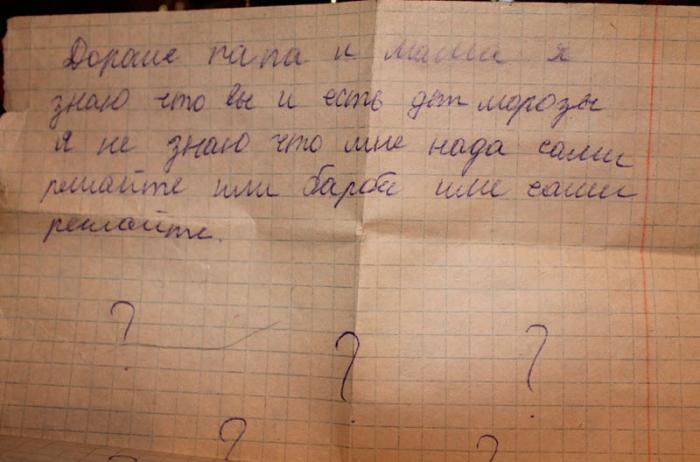 Дорагие папа и мама я
знаю что вы и есть дет морозы
Я не знаю что мне нада сами
решайте или барби или сами
решайте.
? ? ?
? ?